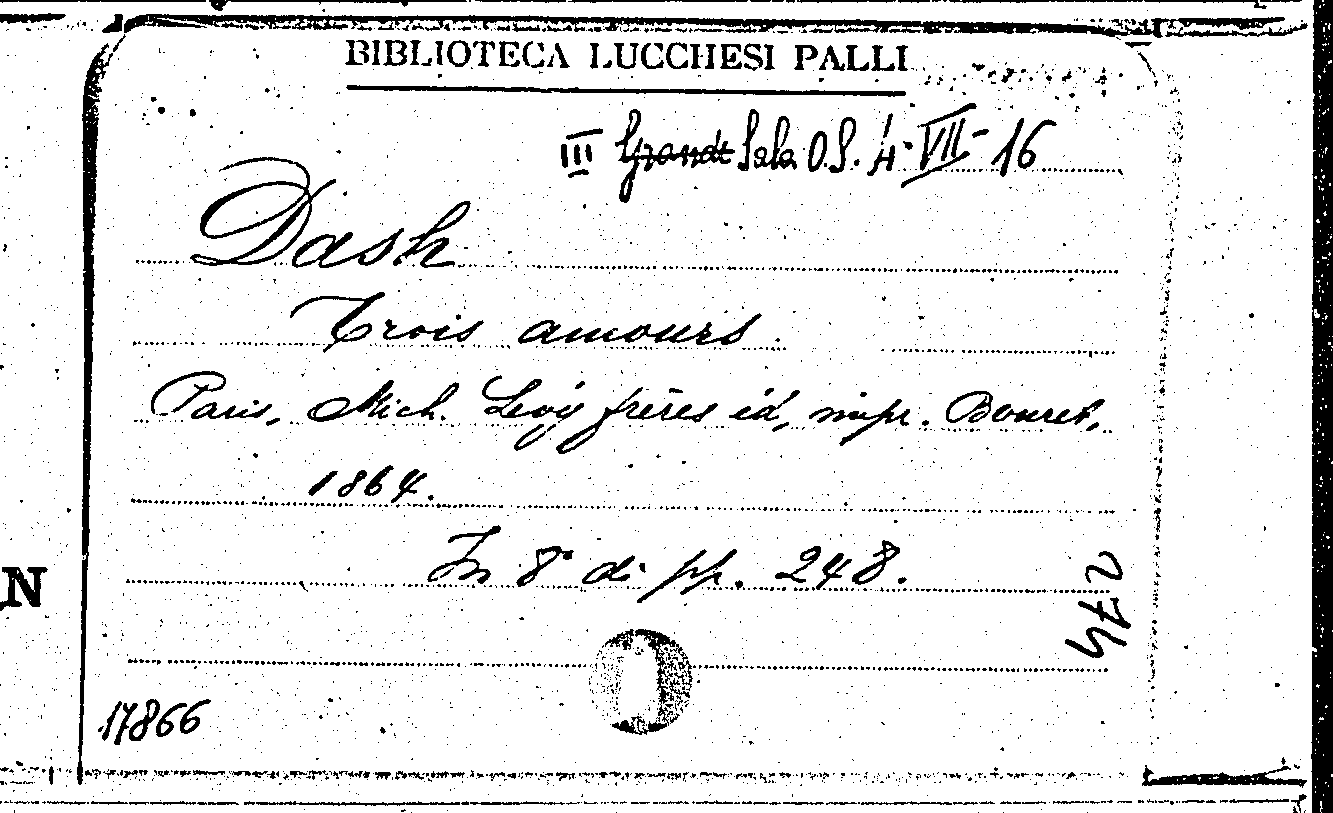 BIBLIOTECA LUCCHESI PALLI
III Grande Sala O.S. 4-VII-16
Dash
Trois amours.
Paris, Mich. Levy frères éd, impr. Bouret,
1864.
In 8° di pp. 248.
274
17866
N